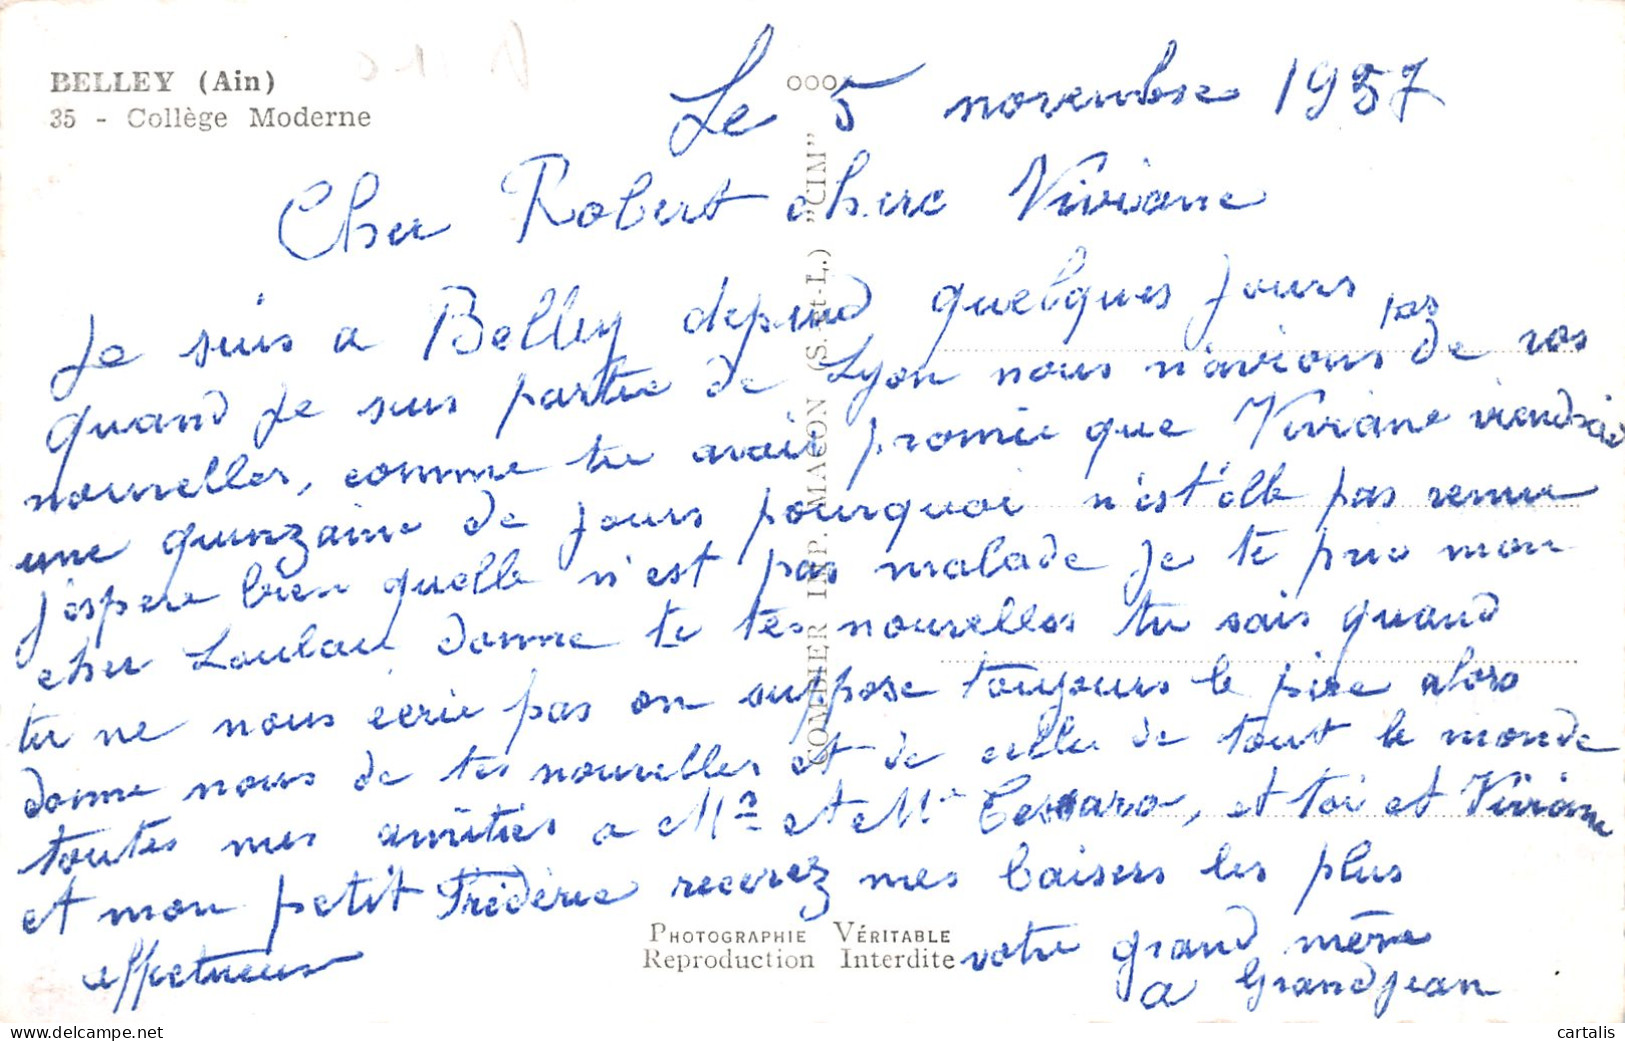 BELLEY (Ain)
35 - Collège Moderne
Le 5 novembre 1957
Cher Robert chere Viviane
Je suis a Belley depuid quelques jours
quand je suis partie de Lyon nous n'avions pas de vos
nouvelles, comme tu avait promie que Viviane viendrais
une quinzaine de jours pourquoi n'est'elle pas venue
j'espere bien quelle n'est pas malade je te prie mon
cher Loulou donne te tes nouvelles tu sais quand
tu ne nous écrie pas on suppose toujours le pire alors
donne nous de tes nouvelles et de celle de tout le monde
toutes mes amities a Mr et Me, et toi et Viviane
et mon petit Fréderic recevez mes baisers les plus
affectueux
votre grand mère
a Grandjean
COMBIER IMP. MACON (S.-et-L.) "CIM"
PHOTOGRAPHIE VÉRITABLE
Reproduction Interdite
cartalis